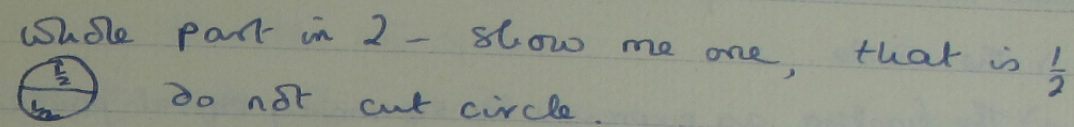 whole part in 2 - show me one, that is 1/2
1/2 do not cut circle.
1/2